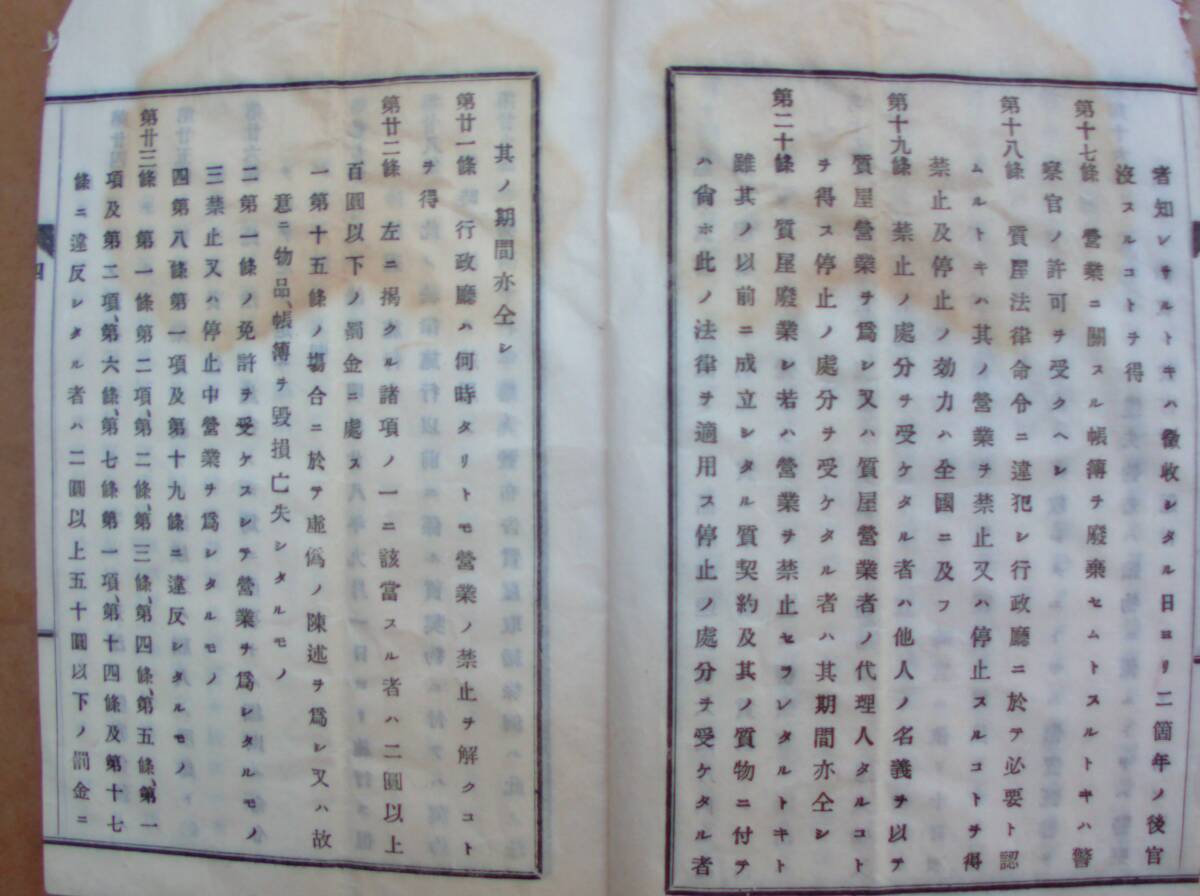 者知レサルトキハ徵收シタル日ヨリ二箇年ノ後官
沒スルコトヲ得
第十七條 營業ニ關スル帳簿ヲ廢棄セムトスルトキハ警
察官ノ許可ヲ受クヘシ
第十八條 質屋法律命令ニ違犯シ行政廳ニ於テ必要ト認
ムルトキハ其ノ營業ヲ禁止又ハ停止スルコトヲ得
禁止及停止ノ効力ハ全國ニ及フ
第十九條 禁止ノ處分ヲ受ケタル者ハ他人ノ名義ヲ以テ
質屋營業ヲ爲シ又ハ質屋營業者ノ代理人タルコト
ヲ得ス停止ノ處分ヲ受ケタル者ハ其期間亦仝シ
第二十條 質屋廢業シ若ハ營業ヲ禁止セラレタルトキト
雖其ノ以前ニ成立シタル質契約及其ノ質物ニ付テ
ハ尙ホ此ノ法律ヲ適用ス停止ノ處分ヲ受ケタル者
其ノ期間亦仝シ
第廿一條 行政廳ハ何時タリトモ營業ノ禁止ヲ解クコト
ヲ得
第廿二條 左ニ揭クル諸項ノ一ニ該當スル者ハ二圓以上
百圓以下ノ罰金ニ處ス
一第十五條ノ塲合ニ於テ虛僞ノ陳述ヲ爲シ又ハ故
意ニ物品、帳簿ヲ毀損亡失シタルモノ
二第一條ノ免許ヲ受ケスシテ營業ヲ爲シタルモノ
三禁止又ハ停止中營業ヲ爲シタルモノ
四第八條第一項及第十九條ニ違反シタルモノ
第廿三條 第一條第二項、第二條、第三條、第四條、第五條、第一
項及第二項、第六條、第七條第一項、第十四條及第十七
條ニ違反シタル者ハ二圓以上五十圓以下ノ罰金ニ
四